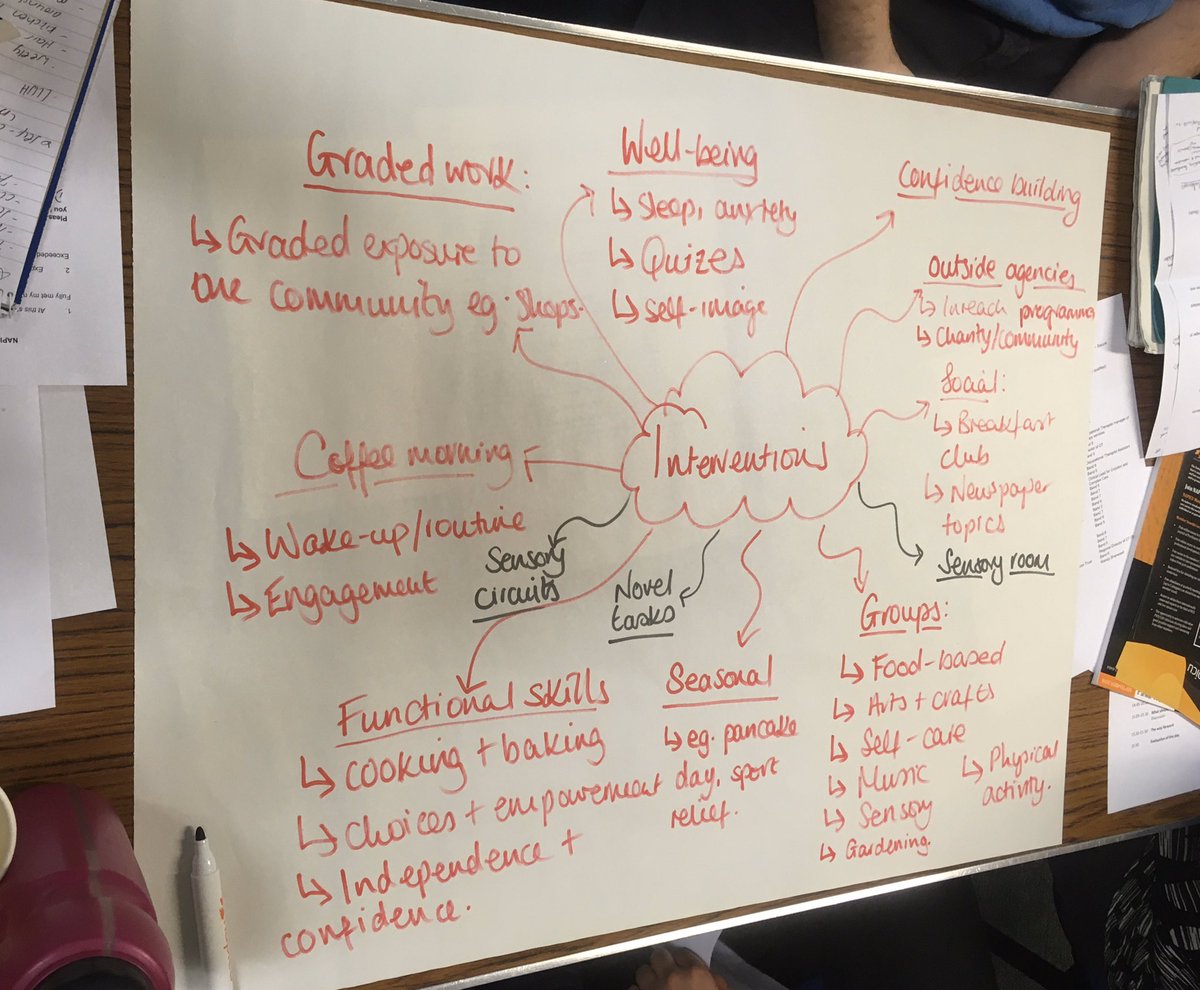 Graded work:
↳ Graded exposure to
the community eg. shops.
Well-being
↳ Sleep, anxiety
↳ Quizes
↳ Self-image
Confidence building
Outside agencies
↳ Inreach programme
↳ Charity/community
Social:
↳ Breakfast
club
↳ Newspaper
topics
Interventions
Coffee morning
↳ Wake-up/routine
↳ Engagement
Sensory
circuits
Novel
tasks
Sensory room
Functional skills
↳ Cooking + baking
↳ Choices + empowerment
↳ Independence +
confidence.
Seasonal
↳ eg. pancake
day, sport
relief.
Groups:
↳ Food-based
↳ Arts + crafts
↳ Self-care
↳ Music
↳ Sensory
↳ Gardening.
↳ Physical
activity.